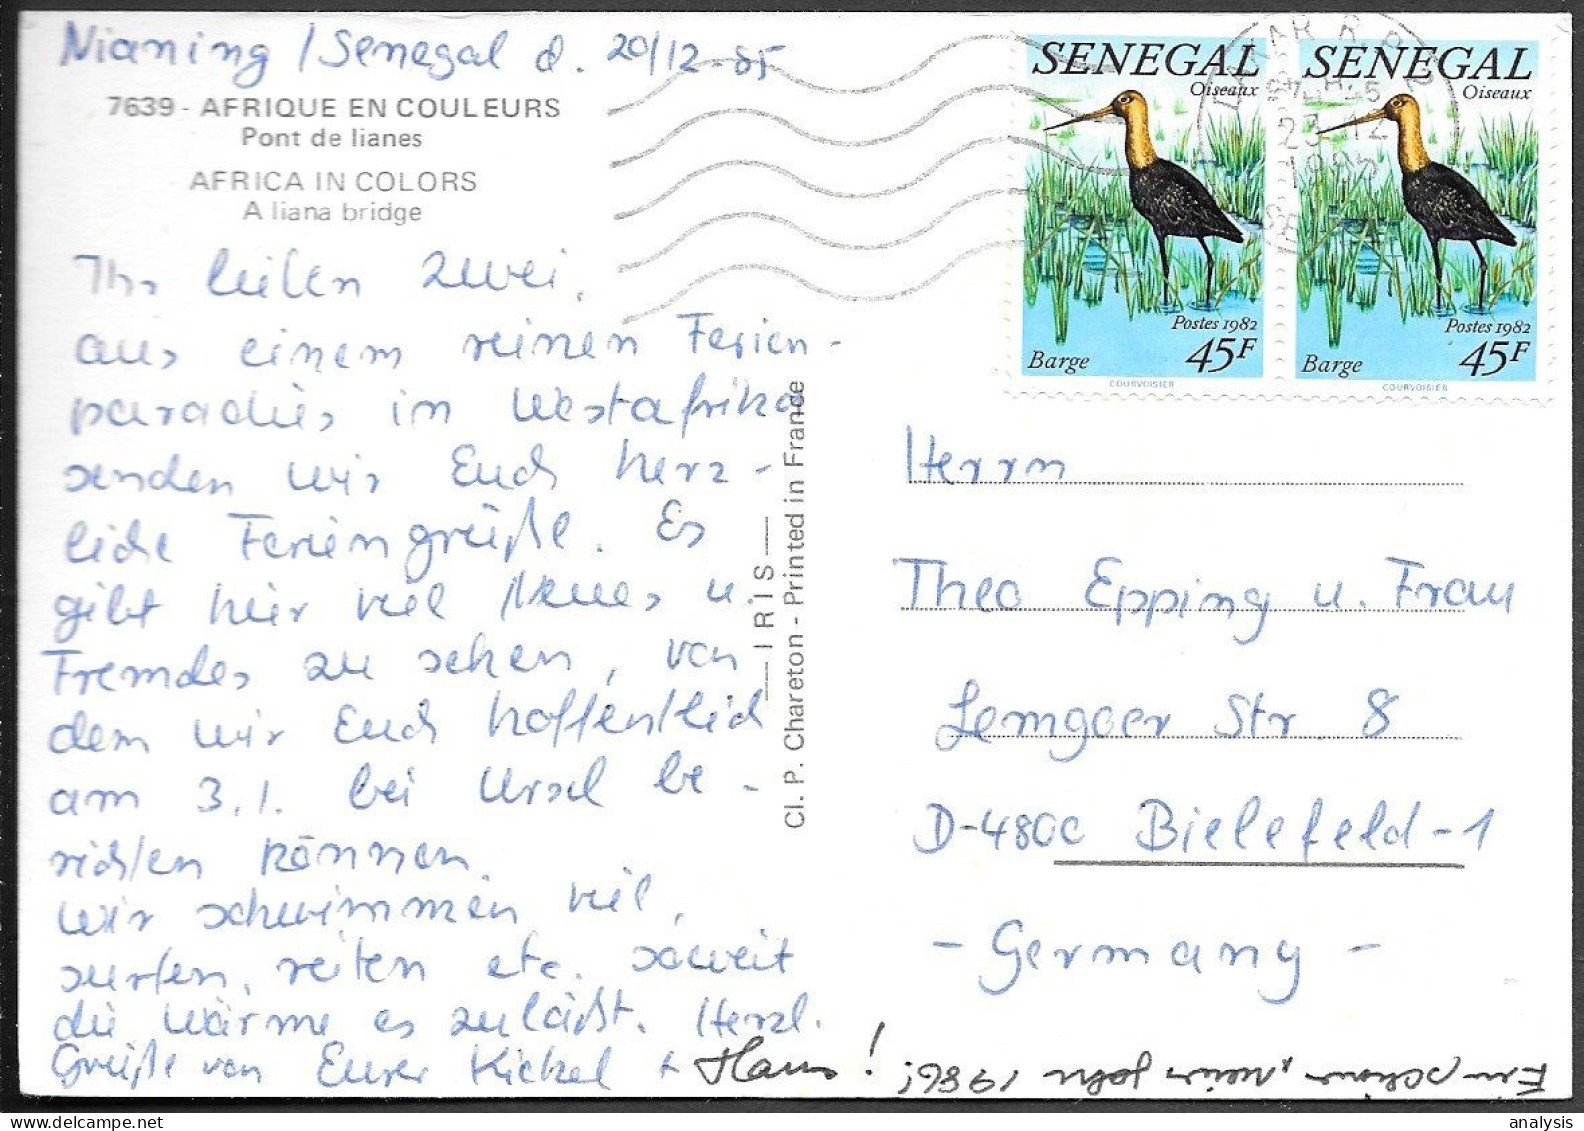 Nianing / Senegal d. 20/12-85
7639 - AFRIQUE EN COULEURS
Pont de lianes
AFRICA IN COLORS
A liana bridge
Ihr lieben zwei,
aus einem reinen Ferien-
paradies in Westafrika
senden wir Euch herz-
liche Feriengrüße. Es
gibt hier viel Neues u.
Fremdes zu sehen, von
dem wir Euch hoffentlich
am 3.1. bei Ursel be-
richten können.
Wir schwimmen viel,
surfen, reiten etc. soweit
die Wärme es zuläßt. Herzl.
Grüße von Eurer Kickel + Hans!
Ein schönes, neues Jahr 1986!
IRIS
Cl. P. Chareton - Printed in France
SENEGAL
Oiseaux
Postes 1982
Barge 45F
COURVOISIER
SENEGAL
Oiseaux
Postes 1982
Barge 45F
COURVOISIER
DAKAR R.P.
23 12
1985
Herrn
Theo Epping u. Frau
Lemgoer Str. 8
D-4800 Bielefeld-1
- Germany -
analysis